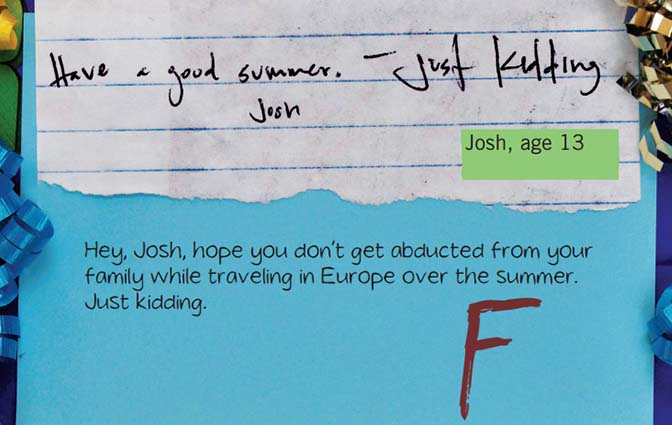 Have a good summer. – Just Kidding
Josh
Josh, age 13
Hey, Josh, hope you don't get abducted from your
family while traveling in Europe over the summer.
Just kidding.
F